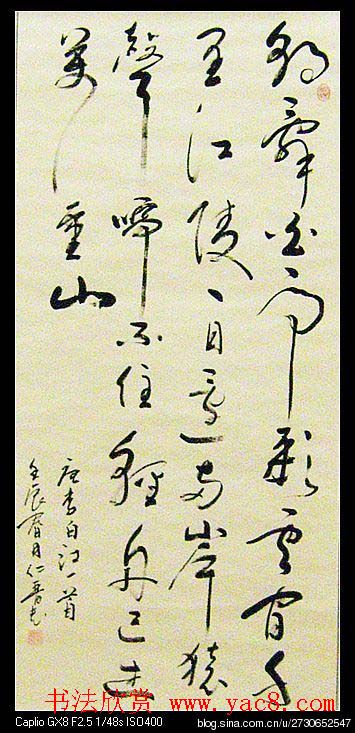 朝辭白帝彩雲間千
里江陵一日還兩岸猿
聲啼不住輕舟已過
萬重山
唐李白詩一首
壬辰春月仁
书法欣赏 www.yac8.com
Caplio GX8 F2.5 1/48s ISO400
blog.sina.com.cn/u/2730652547